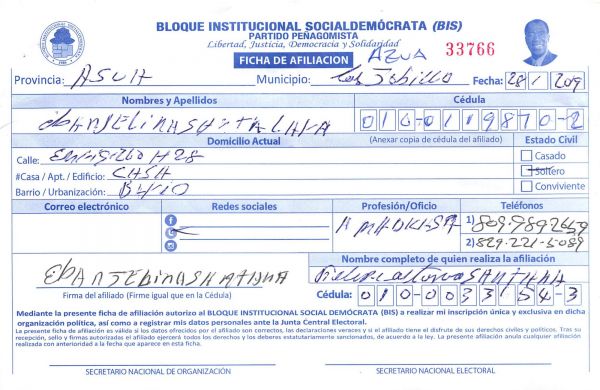 BLOQUE INSTITUCIONAL SOCIALDEMÓCRATA (BIS)
PARTIDO PEÑAGOMISTA
Libertad, Justicia, Democracia y Solidaridad
FICHA DE AFILIACION AZUA 33766
Provincia: ASUA Municipio: Fecha: 28 1 209
Nombres y Apellidos Cédula
010-0119870-2
Domicilio Actual (Anexar copia de cédula del afiliado) Estado Civil
Calle: H 28 Casado
#Casa / Apt. / Edificio: CASA Soltero
Barrio / Urbanización: Conviviente
Correo electrónico Redes sociales Profesión/Oficio Teléfonos
1) 809-989-2659
2) 829-221-5089
Nombre completo de quien realiza la afiliación
SANTANA
Firma del afiliado (Firme igual que en la Cédula) Cédula: 010-0033154-3
Mediante la presente ficha de afiliación autorizo al BLOQUE INSTITUCIONAL SOCIAL DEMÓCRATA (BIS) a realizar mi inscripción única y exclusiva en dicha
organización política, así como a registrar mis datos personales ante la Junta Central Electoral.
La presente ficha de afiliación es válida si los datos ofrecidos por el afiliado son correctos, las declaraciones veraces y si el afiliado tiene el disfrute de sus derechos civiles y políticos. Tras su
recepción, sello y firmas autorizadas el afiliado ejercerá todos los derechos y los deberes estatutariamente sancionados, de acuerdo a la ley. La presente afiliación anula cualquier afiliación
realizada con anterioridad a la fecha que aparece en esta ficha.
SECRETARIO NACIONAL DE ORGANIZACIÓN SECRETARIO NACIONAL ELECTORAL